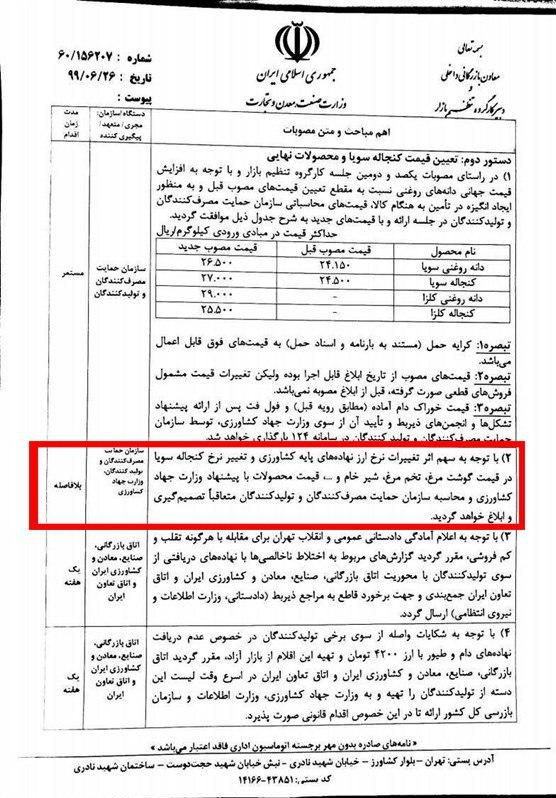 بسمه تعالی
معاون بازرگانی داخلی
و
دبیر کارگروه تنظیم بازار
جمهوری اسلامی ایران
وزارت صنعت، معدن و تجارت
شماره : ۶۰/۱۵۶۲۰۷
تاریخ : ۹۹/۰۶/۲۶
پیوست :
اهم مباحث و متن مصوبات
دستگاه/سازمان:
مجری/متعهد/
پیگیری کننده
مدت
زمان
اقدام
دستور دوم: تعیین قیمت کنجاله سویا و محصولات نهایی
۱) در راستای مصوبات یکصد و دومین جلسه کارگروه تنظیم بازار و با توجه به افزایش
قیمت جهانی دانه‌های روغنی نسبت به مقطع تعیین قیمت‌های مصوب قبل و به منظور
ایجاد انگیزه در تأمین به هنگام کالا، قیمت‌های محاسباتی سازمان حمایت مصرف‌کنندگان
و تولیدکنندگان در جلسه ارائه و با قیمت‌های جدید به شرح جدول ذیل موافقت گردید.
حداکثر قیمت در مبادی ورودی کیلوگرم/ریال
نام محصول قیمت مصوب قبل قیمت مصوب جدید
دانه روغنی سویا ۲۴.۱۵۰ ۲۶.۵۰۰
کنجاله سویا ۲۴.۵۰۰ ۲۷.۰۰۰
دانه روغنی کلزا - ۲۹.۰۰۰
کنجاله کلزا - ۲۵.۵۰۰
تبصره۱: کرایه حمل (مستند به بارنامه و اسناد حمل) به قیمت‌های فوق قابل اعمال
می‌باشد.
تبصره۲: قیمت‌های مصوب از تاریخ ابلاغ قابل اجرا بوده ولیکن تغییرات قیمت مشمول
فروش‌های قطعی صورت گرفته، قبل از ابلاغ مصوبه نمی‌باشد.
تبصره۳: قیمت خوراک دام آماده (مطابق رویه قبل) و فول فت پس از ارائه پیشنهاد
تشکل‌ها و انجمن‌های ذیربط و تأیید آن از سوی وزارت جهاد کشاورزی، توسط سازمان
حمایت مصرف‌کنندگان و تولید کنندگان در سامانه ۱۲۴ بارگذاری خواهد شد.
سازمان حمایت
مصرف‌کنندگان
و تولیدکنندگان
مستمر
۲) با توجه به سهم اثر تغییرات نرخ ارز نهاده‌های پایه کشاورزی و تغییر نرخ کنجاله سویا
در قیمت گوشت مرغ، تخم مرغ، شیر خام و ...، قیمت محصولات با پیشنهاد وزارت جهاد
کشاورزی و محاسبه سازمان حمایت مصرف‌کنندگان و تولیدکنندگان متعاقباً تصمیم‌گیری
و ابلاغ خواهد گردید.
سازمان حمایت
مصرف‌کنندگان و
تولید کنندگان،
وزارت جهاد
کشاورزی
بلافاصله
۳) با توجه به اعلام آمادگی دادستانی عمومی و انقلاب تهران برای مقابله با هرگونه تقلب و
کم فروشی، مقرر گردید گزارش‌های مربوط به اختلاط ناخالصی‌ها با نهاده‌های دریافتی از
سوی تولیدکنندگان با محوریت اتاق بازرگانی، صنایع، معادن و کشاورزی ایران و اتاق
تعاون ایران جمع‌بندی و جهت برخورد قاطع به مراجع ذیربط (دادستانی، وزارت اطلاعات و
نیروی انتظامی) ارسال گردد.
اتاق بازرگانی،
صنایع، معادن و
کشاورزی ایران
و اتاق تعاون
ایران
یک
هفته
۴) با توجه به شکایات واصله از سوی برخی تولیدکنندگان در خصوص عدم دریافت
نهاده‌های دام و طیور با ارز ۴۲۰۰ تومان و تهیه این اقلام از بازار آزاد، مقرر گردید اتاق
بازرگانی، صنایع، معادن و کشاورزی ایران و اتاق تعاون ایران در اسرع وقت لیست این
دسته از تولیدکنندگان را تهیه و به وزارت جهاد کشاورزی، وزارت اطلاعات و سازمان
بازرسی کل کشور ارائه تا در این خصوص اقدام قانونی صورت پذیرد.
اتاق بازرگانی،
صنایع، معادن و
کشاورزی ایران
و اتاق تعاون
ایران
یک
هفته
« نامه‌های صادره بدون مهر برجسته اتوماسیون اداری فاقد اعتبار می‌باشد »
آدرس پستی: تهران - بلوار کشاورز - خیابان شهید نادری - نبش خیابان شهید حجت‌دوست - ساختمان شهید نادری
کد پستی: ۴۳۸۵۱-۱۴۱۶۶